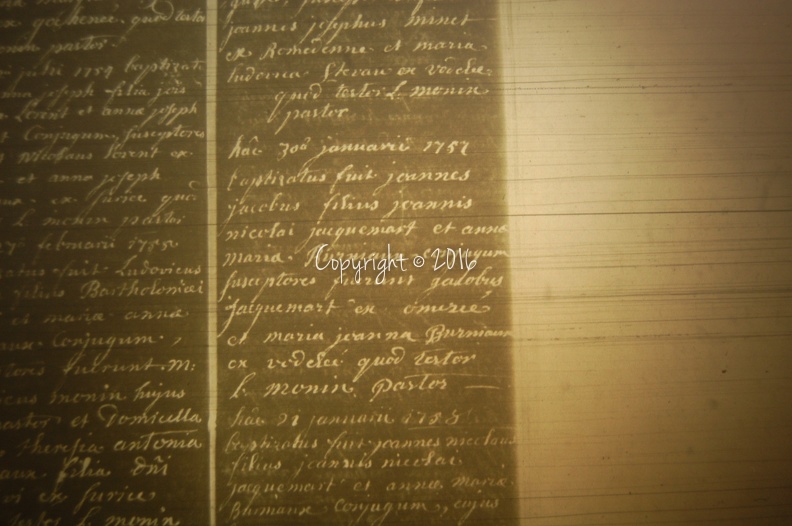 quod testa
pastor.
1759 baptizat
joseph filia joīs
Lorent et anna joseph
Conjugum, susceptores
Nicolaus Lorent ex
et anna joseph
ex surice quod
L. monin pastor
februarii 1755
fuit Ludovicus
filius Bartholomei
et maria anna
Conjugum,
fuerunt M:
monin hujus
pastor et Domicella
theresia antonia
filia dñi
ex surice
L. monin
joannes josephus minet
ex Romedenne et maria
ludovica Stevau ex vodelée
quod testor L. monin
pastor
hâc 30â januarii 1757
baptizatus fuit joannes
jacobus filius joannis
nicolai jacquemart et anna
maria Burniaux conjugum
susceptores fuerunt jacobus
jacquemart ex omezée
et maria joanna Burniaux
ex vodelée quod testor
L. monin pastor
hâc 21 januarii
baptizatus fuit joannes nicolaus
filius joannis nicolai
jacquemart et anna maria
Burniaux Conjugum, cujus
Copyright © 2016